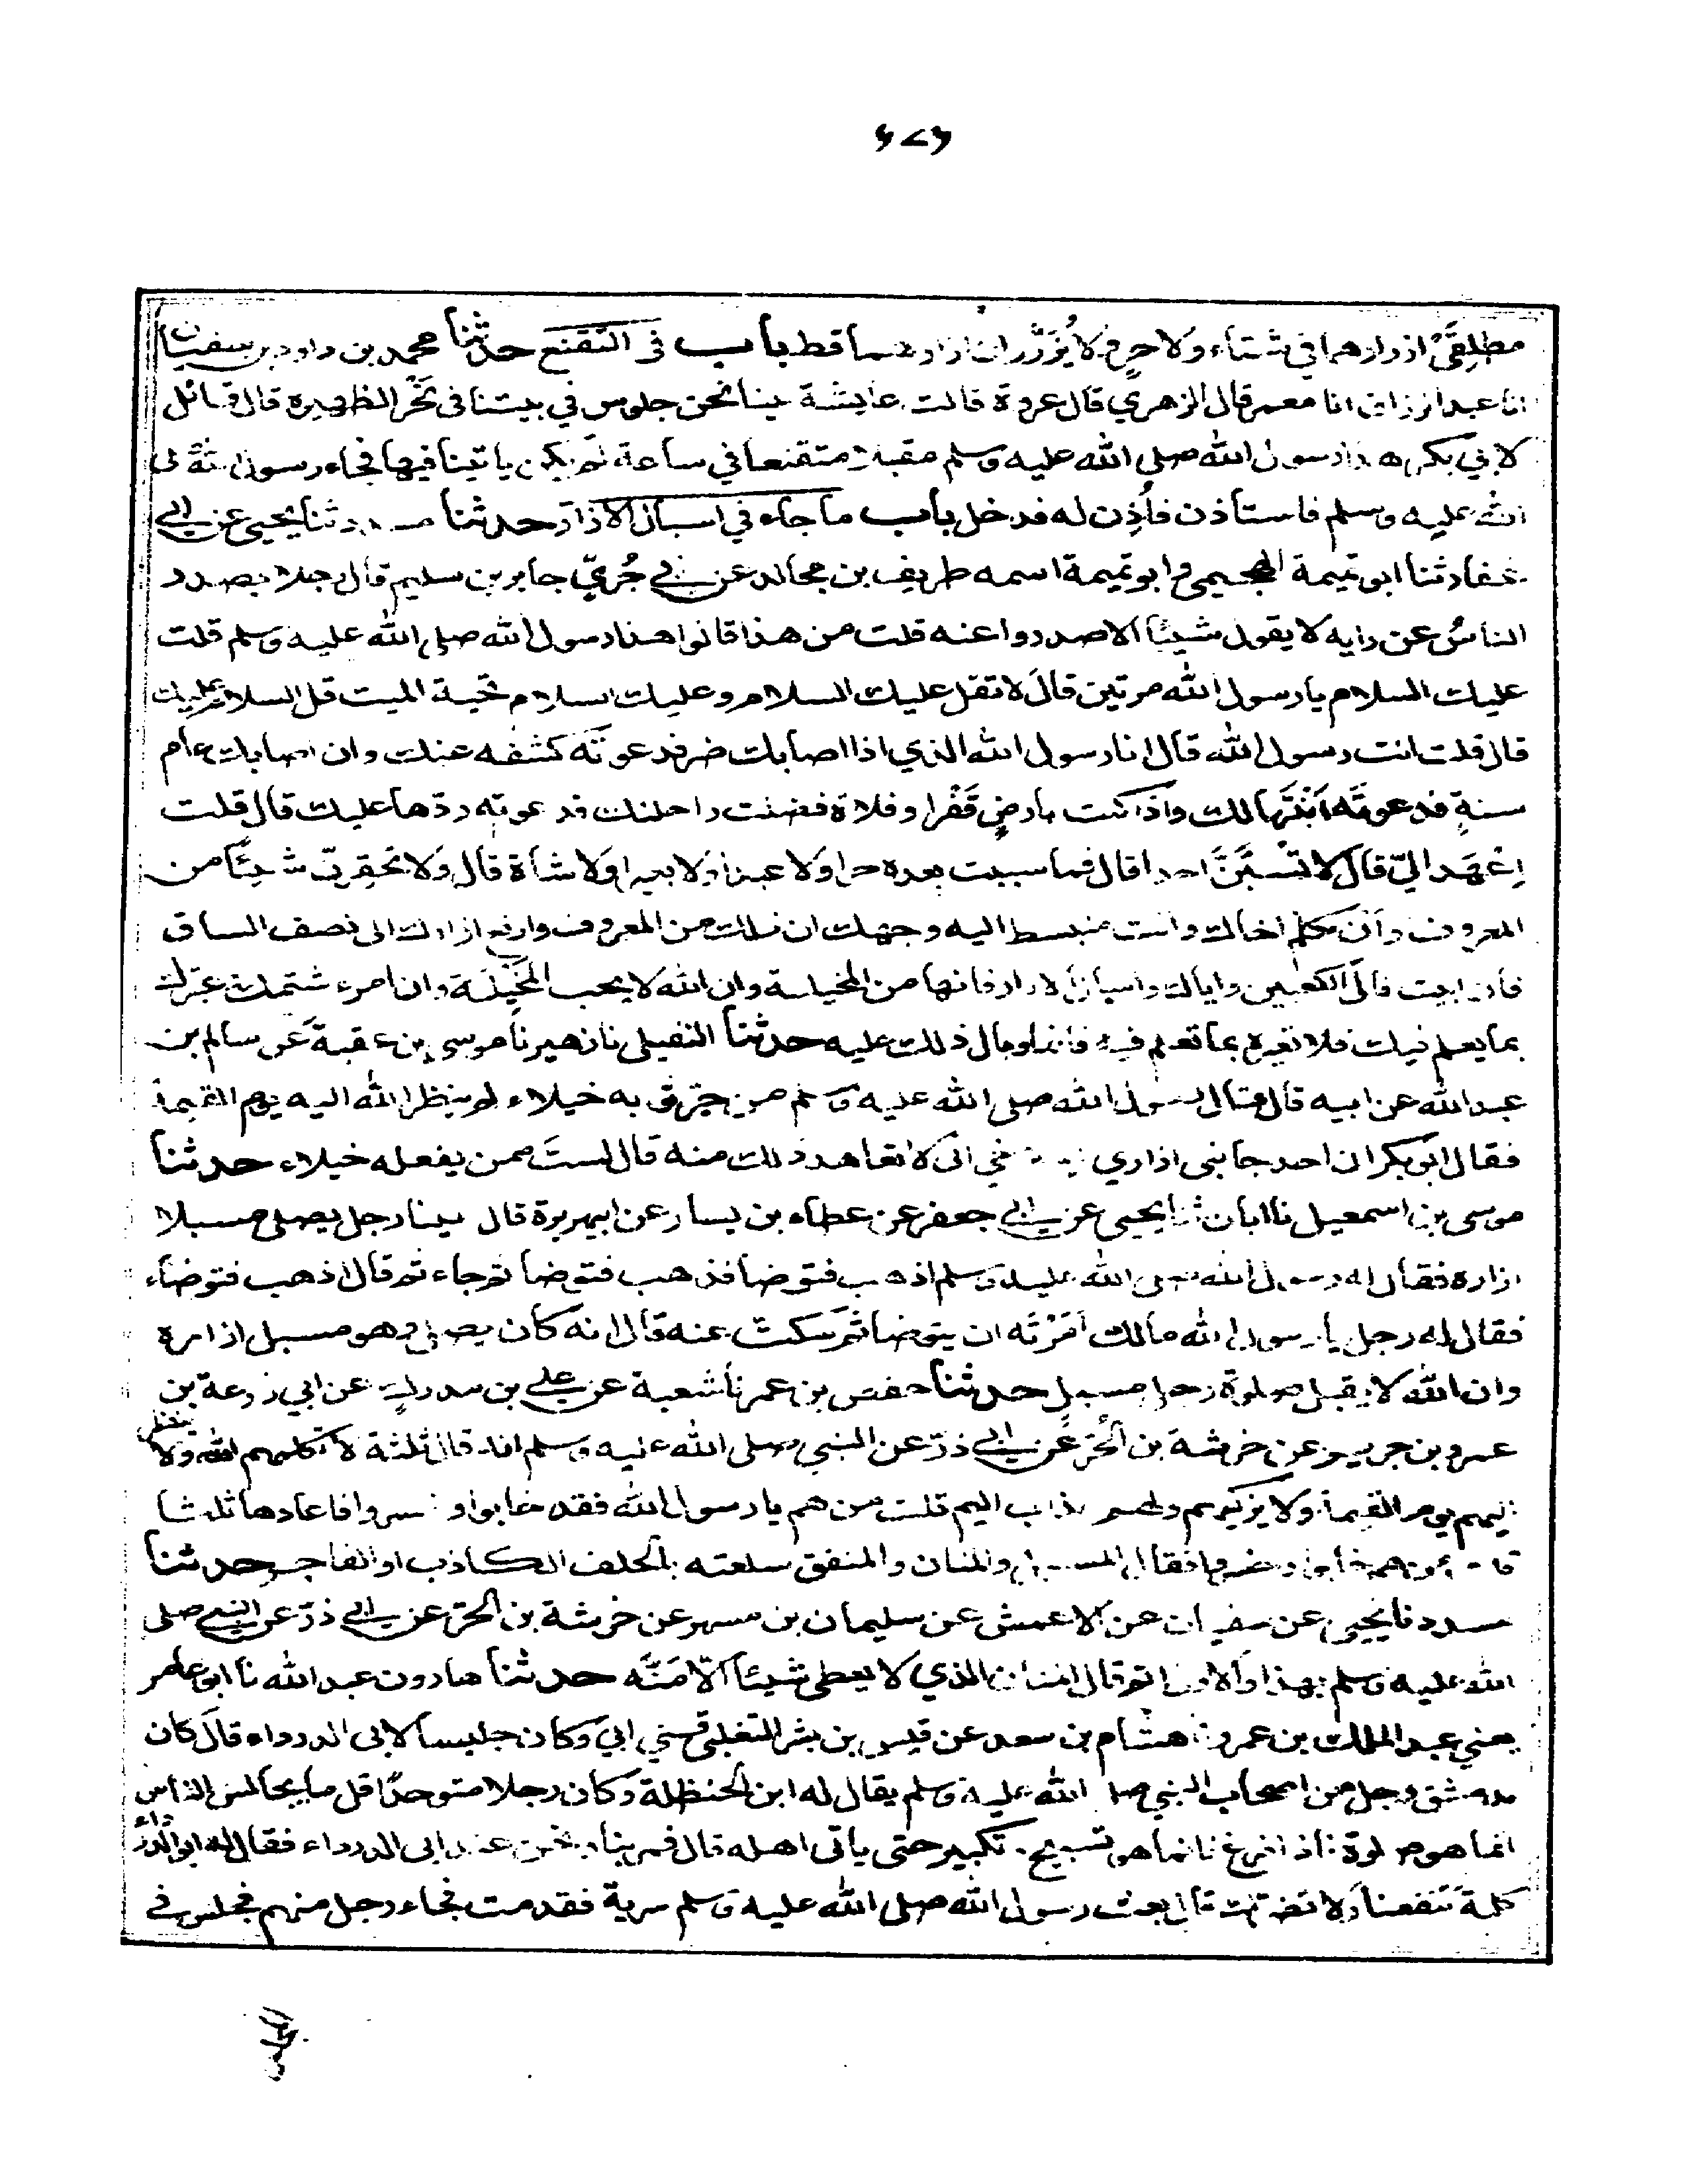 مطلقي ازرارهما في شتاء ولا حر ولا يزرران ازرارهما قط باب في التقنع حدثنا محمد بن داود بن سفيان
انا عبد الرزاق انا معمر قال الزهري قال عروة قالت عايشة بينا نحن جلوس في بيتنا في نحر الظهيرة قال قائل
لابي بكر هذا رسول الله صلى الله عليه وسلم مقبلا متقنعا في ساعة لم يكن ياتينا فيها فجاء رسول الله صلى
الله عليه وسلم فاستاذن فأذن له فدخل باب ما جاء في اسبال الازار حدثنا مسدد ثنا يحيى عن ابي
غفار ثنا ابو تميمة الهجيمي وابو تميمة اسمه طريف بن مجالد عن ابي جُرَيّ جابر بن سليم قال رجلا يصدر
الناسُ عن رايه لا يقول شيئا الا صدروا عنه قلت من هذا قالوا هذا رسول الله صلى الله عليه وسلم قلت
عليك السلام يا رسول الله مرتين قال لا تقل عليك السلام وعليك السلام تحية الميت قل السلام عليك
قال قلت انت رسول الله قال انا رسول الله الذي اذا اصابك ضر فدعوته كشفه عنك وان اصابك عام
سنةٍ فدعوته أنبتها لك واذا كنت بارضٍ قَفْرا وفلاة فضلت راحلتك فدعوته ردّها عليك قال قلت
اِعْهَد اليّ قال لا تسُبَّنَّ احدا قال فما سببت بعده حرا ولا عبدا ولا بعيرا ولا شاة قال ولا تحقرنّ شيئًا من
المعروف وأن تكلم اخاك وانت منبسط اليه وجهك ان ذلك من المعروف وارفع ازارك الى نصف الساق
فان ابيت فالى الكعبين واياك واسبال الازار فانها من المخيلة وان الله لا يحب المَخِيْلَة وان امرء شتمك وعيّرك
بما يعلم فيك فلا تعيره بما تعلم فيه فانما وبال ذلك عليه حدثنا النفيلي نا زهير نا موسى بن عقبة عن سالم بن
عبد الله عن ابيه قال قال رسول الله صلى الله عليه وسلم من جر ثوبه خيلاء لم ينظر الله اليه يوم القيمة
فقال ابو بكر ان احد جانبي ازاري يسترخي اني لا تعاهد ذلك منه قال لستَ ممن يفعله خيلاء حدثنا
موسى بن اسمعيل نا ابان ثنا يحيى عن ابي جعفر عن عطاء بن يسار عن ابيهريرة قال بينا رجل يصلي مسبلا
ازاره فقال له رسول الله صلى الله عليه وسلم اذهب فتوضا فذهب فتوضا ثم جاء ثم قال اذهب فتوضاء
فقال له رجل يا رسول الله مالك أمَرْتَه ان يتوضا ثم سكت عنه قال انه كان يصلي وهو مسبل ازاره
وان الله لا يقبل صلوة رجل مسبلٍ حدثنا حفص بن عمر نا شعبة عن علي بن مدرك عن ابي زرعة بن
عمرو بن جرير عن خرشة بن الحُرّ عن ابي ذرّ عن النبي صلى الله عليه وسلم انه قال ثلثة لا تكلمهم الله ولا ينظر
اليهم يوم القيمة ولا يزكيهم ولهم عذاب اليم قلت من هم يا رسول الله فقد خابوا وخسروا فاعادها ثلثا
قلت من هم خابوا وخسروا فقال المسبل والمنان والمنفق سلعته بالحلف الكاذب او الفاجر حدثنا
مسدد نا يحيى عن سفيان عن الاعمش عن سليمان بن مسهر عن خرشة بن الحرّ عن ابي ذرّ عن النبي صلى
الله عليه وسلم بهذا والاول اتم قال المنان الذي لا يعطى شيئا الّا مَنَّه حدثنا هارون عبد الله نا ابو عامر
يعني عبد الملك بن عمرو نا هشام بن سعد عن قيس بن بشر التغلبي قال حدثني ابي وكان جليسا لابى الدرداء قال كان
بدمشق رجل من اصحاب النبي صلى الله عليه وسلم يقال له ابن الحنظلة وكان رجلا متوحدًا قل ما يجالس الناس
انما هو صلوة فاذا فرغ فانما هو تسبيح وتكبير حتى ياتى اهله قال فمر بنا ونحن عند ابي الدرداء فقال له ابو الدرداء
كلمةً تنفعنا ولا تضرك قال بعث رسول الله صلى الله عليه وسلم سرية فقدمت فجاء رجل منهم فجلس في